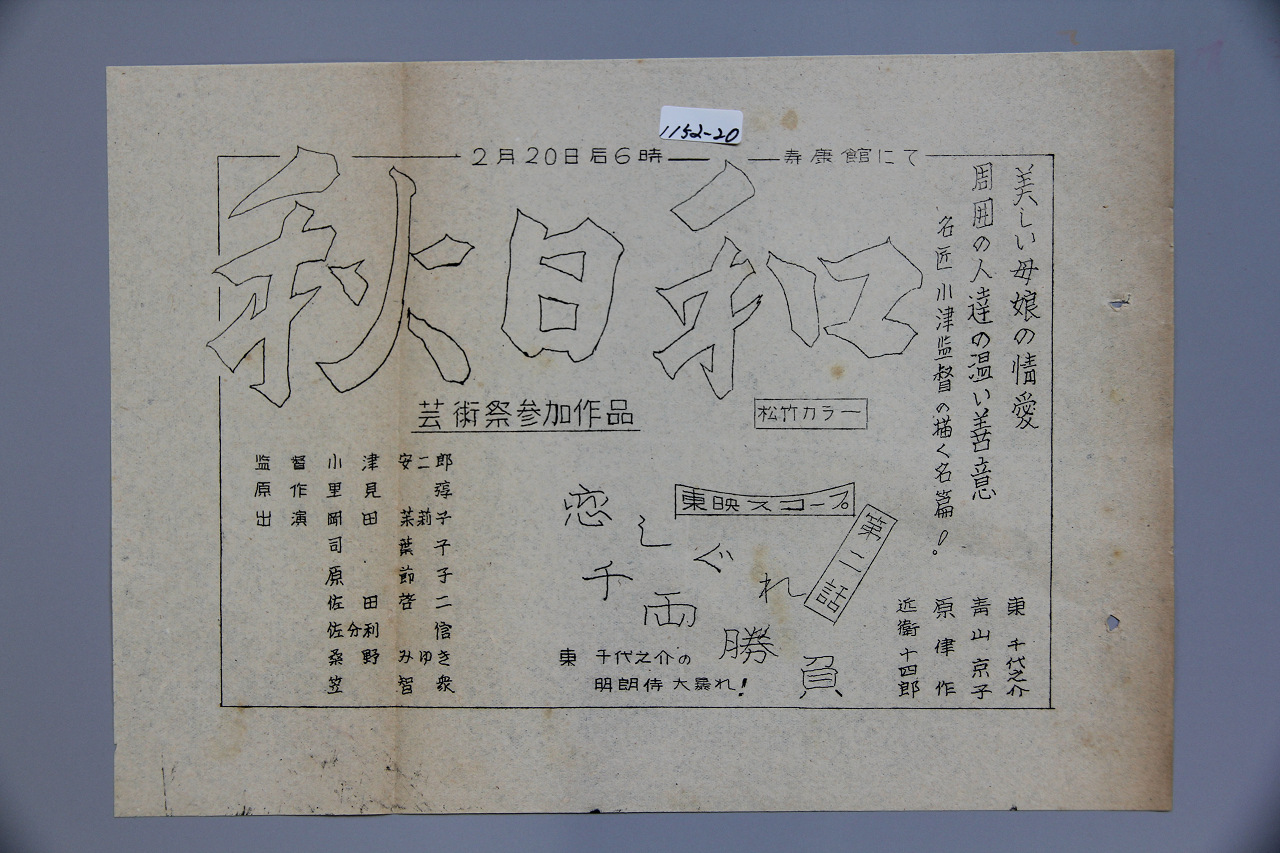 1152-20
2月20日后6時
寿康館にて
秋日和
美しい母娘の情愛
周囲の人達の温い善意
名匠小津監督の描く名篇!
芸術祭参加作品
松竹カラー
監督 小津安二郎
原作 里見弴
出演 岡田茉莉子
司葉子
原節子
佐田啓二
佐分利信
桑野みゆき
笠智衆
東映スコープ
恋しぐれ
千両勝負
第二話
東 千代之介の
明朗侍大暴れ!
東 千代之介
青山京子
原律作
近衛十四郎